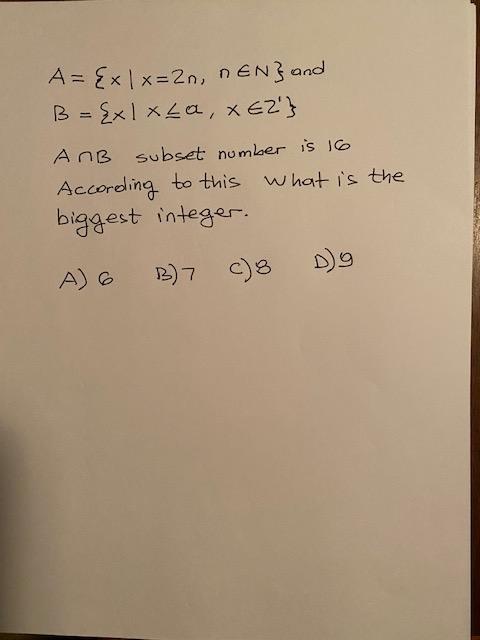 A = {x | x=2n, n ∈ N} and
B = {x | x ≤ a, x ∈ Z'}
A ∩ B subset number is 16
According to this what is the
biggest integer.
A) 6 B) 7 C) 8 D) 9